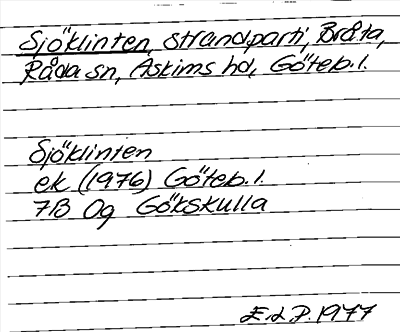 Sjöklinten, strandparti, Bråta,
Råda sn, Askims hd, Göteb. l.
Sjöklinten
ek (1976) Göteb. l.
7B 0g Gökskulla
E. d P. 1977